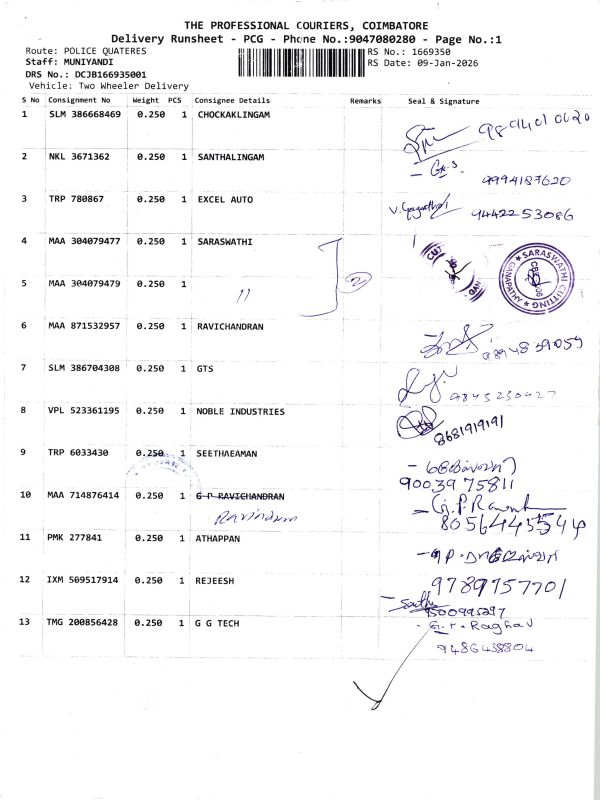 THE PROFESSIONAL COURIERS, COIMBATORE
Delivery Runsheet - PCG - Phone No.:9047080280 - Page No.:1
Route: POLICE QUATERES
RS No.: 1669350
Staff: MUNIYANDI
RS Date: 09-Jan-2026
DRS No.: DCJB166935001
Vehicle: Two Wheeler Delivery
S No Consignment No Weight PCS Consignee Details Remarks Seal & Signature
1 SLM 386668469 0.250 1 CHOCKAKLINGAM
2 NKL 3671362 0.250 1 SANTHALINGAM
9994187620
3 TRP 780867 0.250 1 EXCEL AUTO
9442253086
4 MAA 304079477 0.250 1 SARASWATHI
SARASWATHI CUTTING
GANAPATHY
5 MAA 304079479 0.250 1 11
2
6 MAA 871532957 0.250 1 RAVICHANDRAN
7 SLM 386704308 0.250 1 GTS
9843230427
8 VPL 523361195 0.250 1 NOBLE INDUSTRIES
8681919191
9 TRP 6033430 0.250 1 SEETHAEAMAN
9003975811
10 MAA 714876414 0.250 1 G P RAVICHANDRAN
8056445544
11 PMK 277841 0.250 1 ATHAPPAN
12 IXM 509517914 0.250 1 REJEESH
9789757701
9500995297
13 TMG 200856428 0.250 1 G G TECH
G.r. Raghav
9486438804